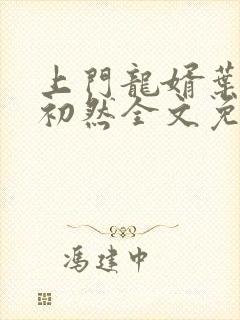 上門龍婿葉
初然全文免
馮建中